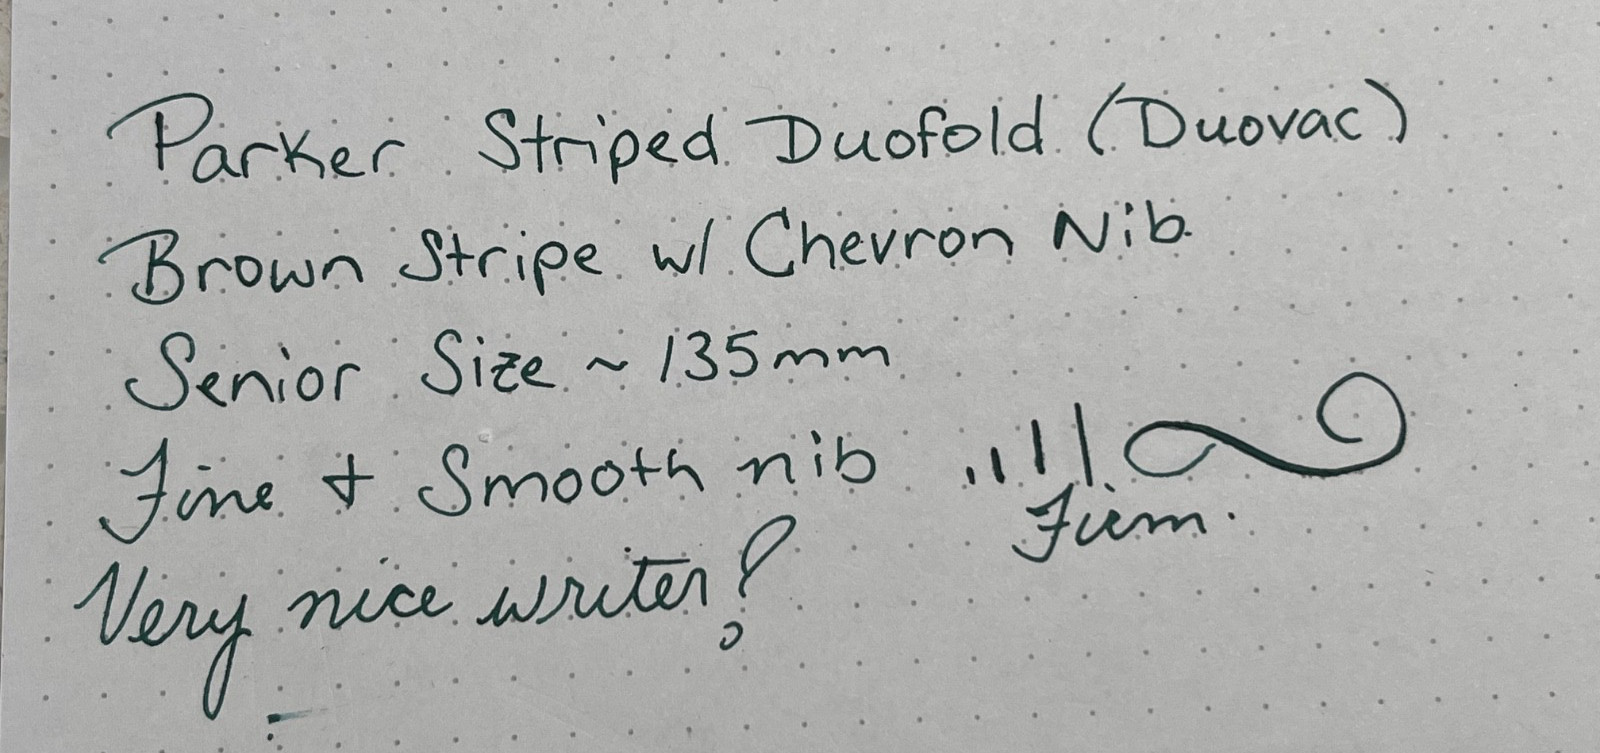 Parker Striped Duofold (Duovac)
Brown Stripe w/ Chevron Nib
Senior Size ~ 135mm
Fine + Smooth nib
Firm.
Very nice writer!